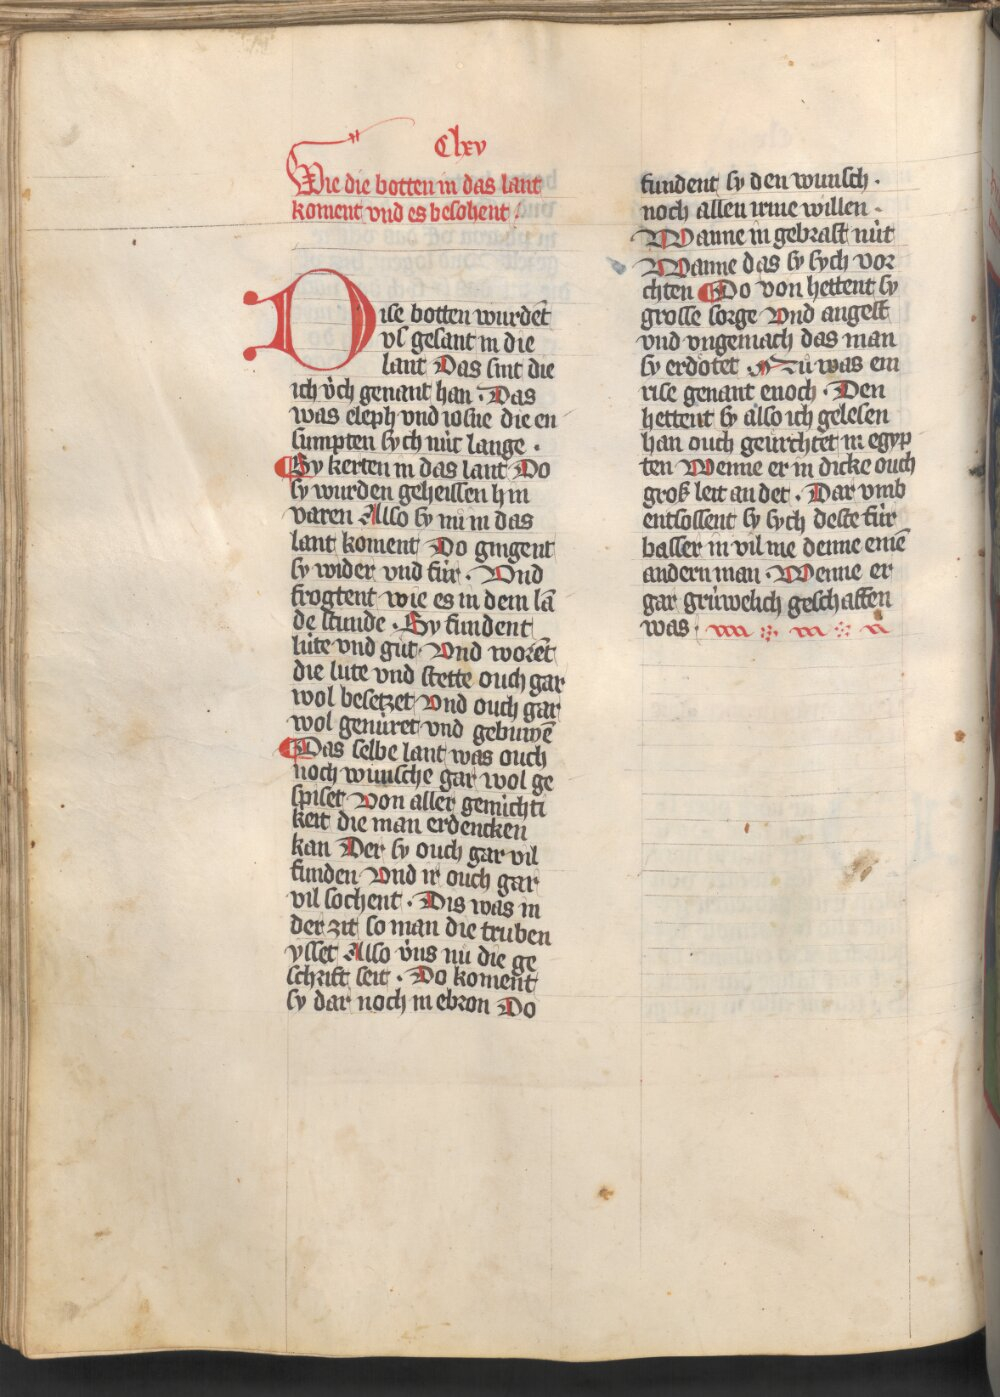 Clxv
Wie die botten in das lant
koment vnd es besohent ·
Dise botten wurdēt
vs gesant in die
lant Das sint die
ich v̇ch genant han · Das
was eleph vnd iosue die en
sumpten sych nu̇t lange ·
Sy kerten in das lant Do
sy wurden geheissen hin
varen Also sy nu in das
lant koment Do gingent
sy wider vnd fu̇r · Vnd
frogtent wie es in dem lā
de stunde · Sy fundent
lu̇te vnd gu̇t · Vnd worēt
die lute vnd stette ouch gar
wol besetzet Vnd ouch gar
wol genu̇ret vnd gebuwē
Das selbe lant was ouch
noch wunsche gar wol ge
spiset Von aller genu̇chti
keit die man erdencken
kan Der sy ouch gar vil
funden Vnd ir ouch gar
vil sochent · Dis was in
der zit so man die truben
ysset Also v̇ns nu die ge
schrift seit · Do koment
sy dar noch in ebron Do
fundent sy den wunsch ·
noch allen irme willen ·
Wanne in gebrast nu̇t
Wanne das sy sych vor
chten Do von hettent sy
grosse sorge Vnd angest
vnd vngemach das man
sy erdotet · Nu was ein
rise genant enoch · Den
hettent sy also ich gelesen
han ouch geu̇rchtet in egyp
ten Wenne er in dicke ouch
groß leit an det · Dar vmb
entsossent sy sych deste fu̇r
basser in vil me denne einē
andern man · Wenne er
gar gru̇welich geschaffen
was ·